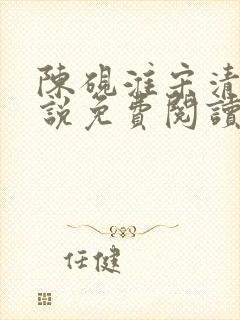 陳硯淮宋清
說免費閱讀
任健